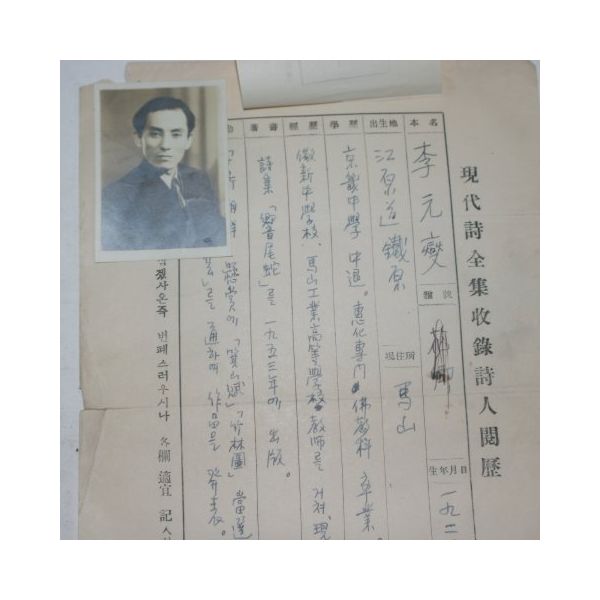 現代詩全集收錄詩人閱歷
本名 李元燮 雅號
生年月日 一九二
出生地 江原道鐵原 現住所 馬山
學歷 京畿中學 中退。惠化專門 佛敎科 卒業。
經歷 徽新中學校、馬山工業高等學校 敎師를 거쳐、現
著書 詩集「響尾蛇」를 一九五三年에 出版。
懸賞에「箕山賦」「竹林圖」當選
를 通하여 作品을 發表。
사온즉 번페스러우시나 各欄 適宜 記入